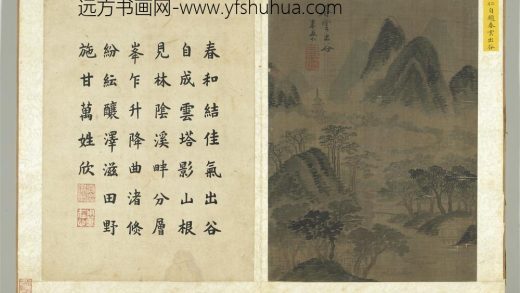 远方书画网-www.yfshuhua.com
春和結佳氣出谷
自成雲塔影山根
見林陰溪畔分層
峯乍升降曲渚倏
紛紜釀澤滋田野
施甘萬姓欣
雲出谷
自題春雲出谷